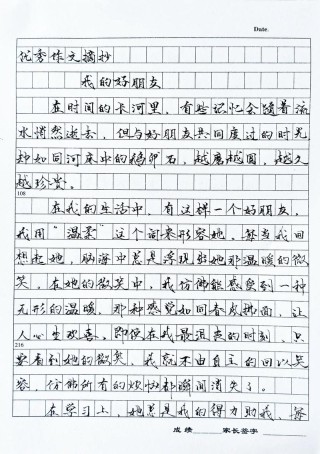 Date.
优秀作文摘抄
我的好朋友
在时间的长河里，有些记忆会随着流
水悄然逝去，但与好朋友共同度过的时光
却如同河床中的鹅卵石，越磨越圆，越久
越珍贵。
108
在我的生活中，有这样一个好朋友，
我用“温柔”这个词来形容她，每当我回
想起她，脑海中总是浮现出她那温暖的微
笑，在她的微笑中，我仿佛能感受到一种
无形的温暖，那种感觉如同春风拂面，让
人心生欢喜。即便在我最沮丧的时刻，只
216
要看到她的微笑，我就不由自主的回以笑
容，仿佛所有的烦恼都瞬间消失了。
在学习上，她总是我的得力助我，每
成绩 家长签字